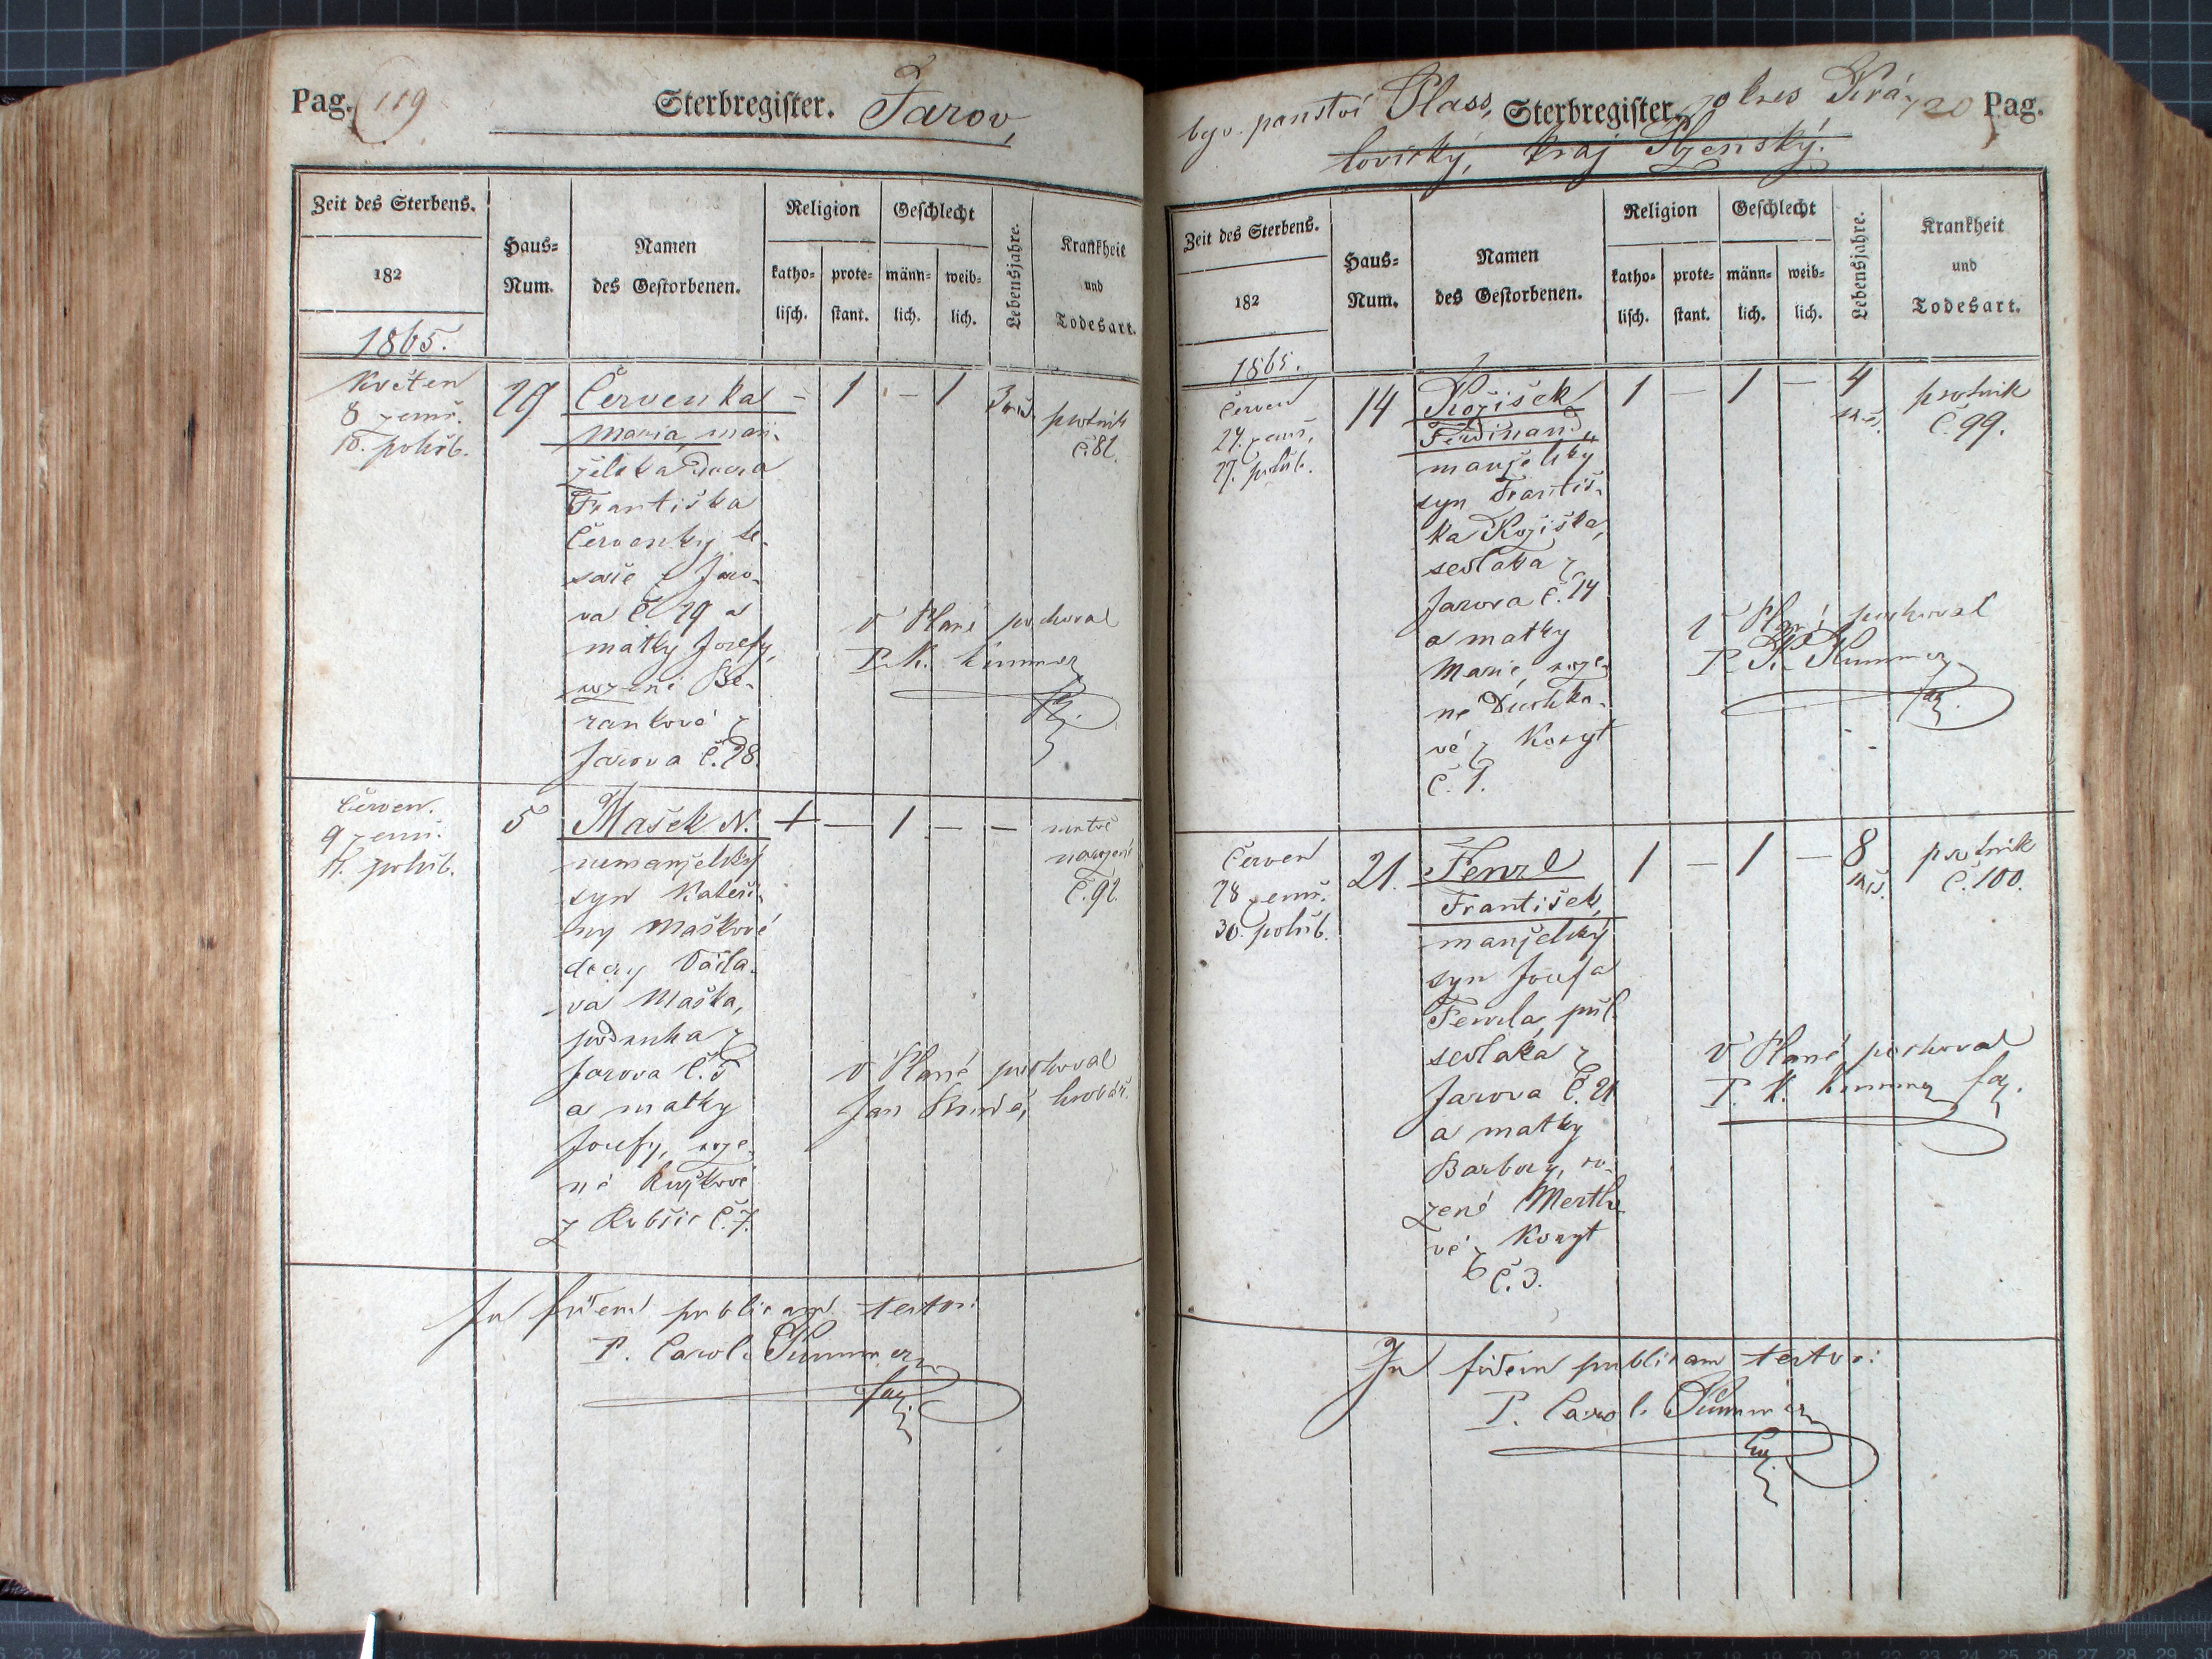 Pag. 119
Sterbregister. Jarov,
Zeit des Sterbens.
182
1865.
Haus=
Num.
Namen
des Gestorbenen.
Religion
katho=
lisch.
prote=
stant.
Geschlecht
männ=
lich.
weib=
lich.
Lebensjahre.
Krankheit
und
Todesart.
Květen
8 zemř.
10. pohřb.
29
Červenka
Maria, man-
želská dcera
Františka
Červenky te-
saře z Jaro-
va Č 29 a
matky Josefy,
rozené Be-
rankové z
Jarova č. 28.
- 1 - 1
3 měs.
psotník
č. 82.
v Plané pochoval
P. K. Kummer
far.
Červen.
9 zemř.
11. pohřb.
5
Mašek N.
nemanželský
syn Kateři-
ny Maškové
dcery Václa-
va Maška,
podruha z
Jarova č. 5
a matky
Josefy, roze-
né
z Robčic č. 7.
+ — 1 — —
mrtvě
narozené
č. 92.
v Plané pochoval
Jan hrobař.
In fidem publicam testor:
P. Carol. Kummer
far.
byv. panství Plass, Sterbregister. okres Kra- 120 Pag.
lovický, kraj Plzeňský.
Zeit des Sterbens.
182
1865.
Haus=
Num.
Namen
des Gestorbenen.
Religion
katho=
lisch.
prote=
stant.
Geschlecht
männ=
lich.
weib=
lich.
Lebensjahre.
Krankheit
und
Todesart.
Červen
27. zemř.
14
Kožíšek
Ferdinand,
manželský
syn Františ-
ka Kožíška,
sedláka z
Jarova č. 14
a matky
Marie, roze-
né Duchko-
vé z Koryt
č. 1.
1 — 1 —
4
měs.
psotník
č. 99.
v Plané pochoval
P. K. Kummer
far.
Červen
28 zemř.
30. pohřb.
21.
Fenzl
František,
manželský
syn Josefa
Fenzla, půl-
sedláka z
Jarova č. 21
a matky
Barbory, ro-
zené Mertlo-
vé z Koryt
č. 3.
1 — 1 —
8
měs.
psotník
č. 100.
v Plané pochoval
P. K. Kummer far.
In fidem publicam testor:
P. Carol. Kummer
far.